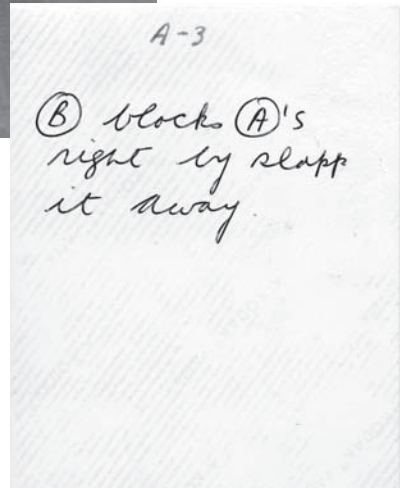 A-3
B blocks A's
right by slapp
it away.